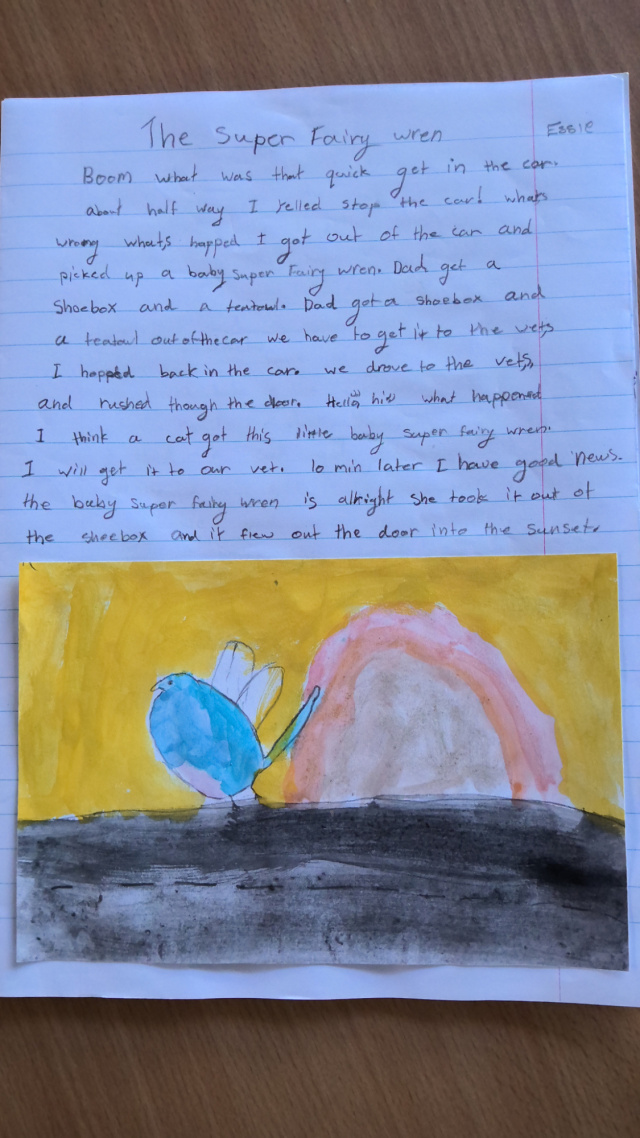 The Super Fairy wren
Essie
Boom what was that quick get in the car.
about half way I yelled stop the car! whats
wrong whats happed I got out of the car and
picked up a baby super Fairy wren. Dad get a
Shoebox and a teatowl. Dad got a shoebox and
a teatowl out of the car we have to get it to the vets
I hopped back in the car. we drove to the vets,
and rushed though the door. Hello, hi what happened
I think a cat got this little baby super fairy wren.
I will get it to our vet. 10 min later I have good news.
the baby super fairy wren is alright she took it out of
the shoebox and it flew out the door into the sunset.